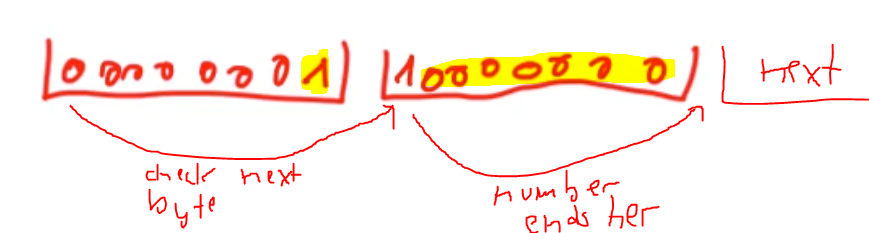 00000001 10000000 next
check next
byte
number
ends her